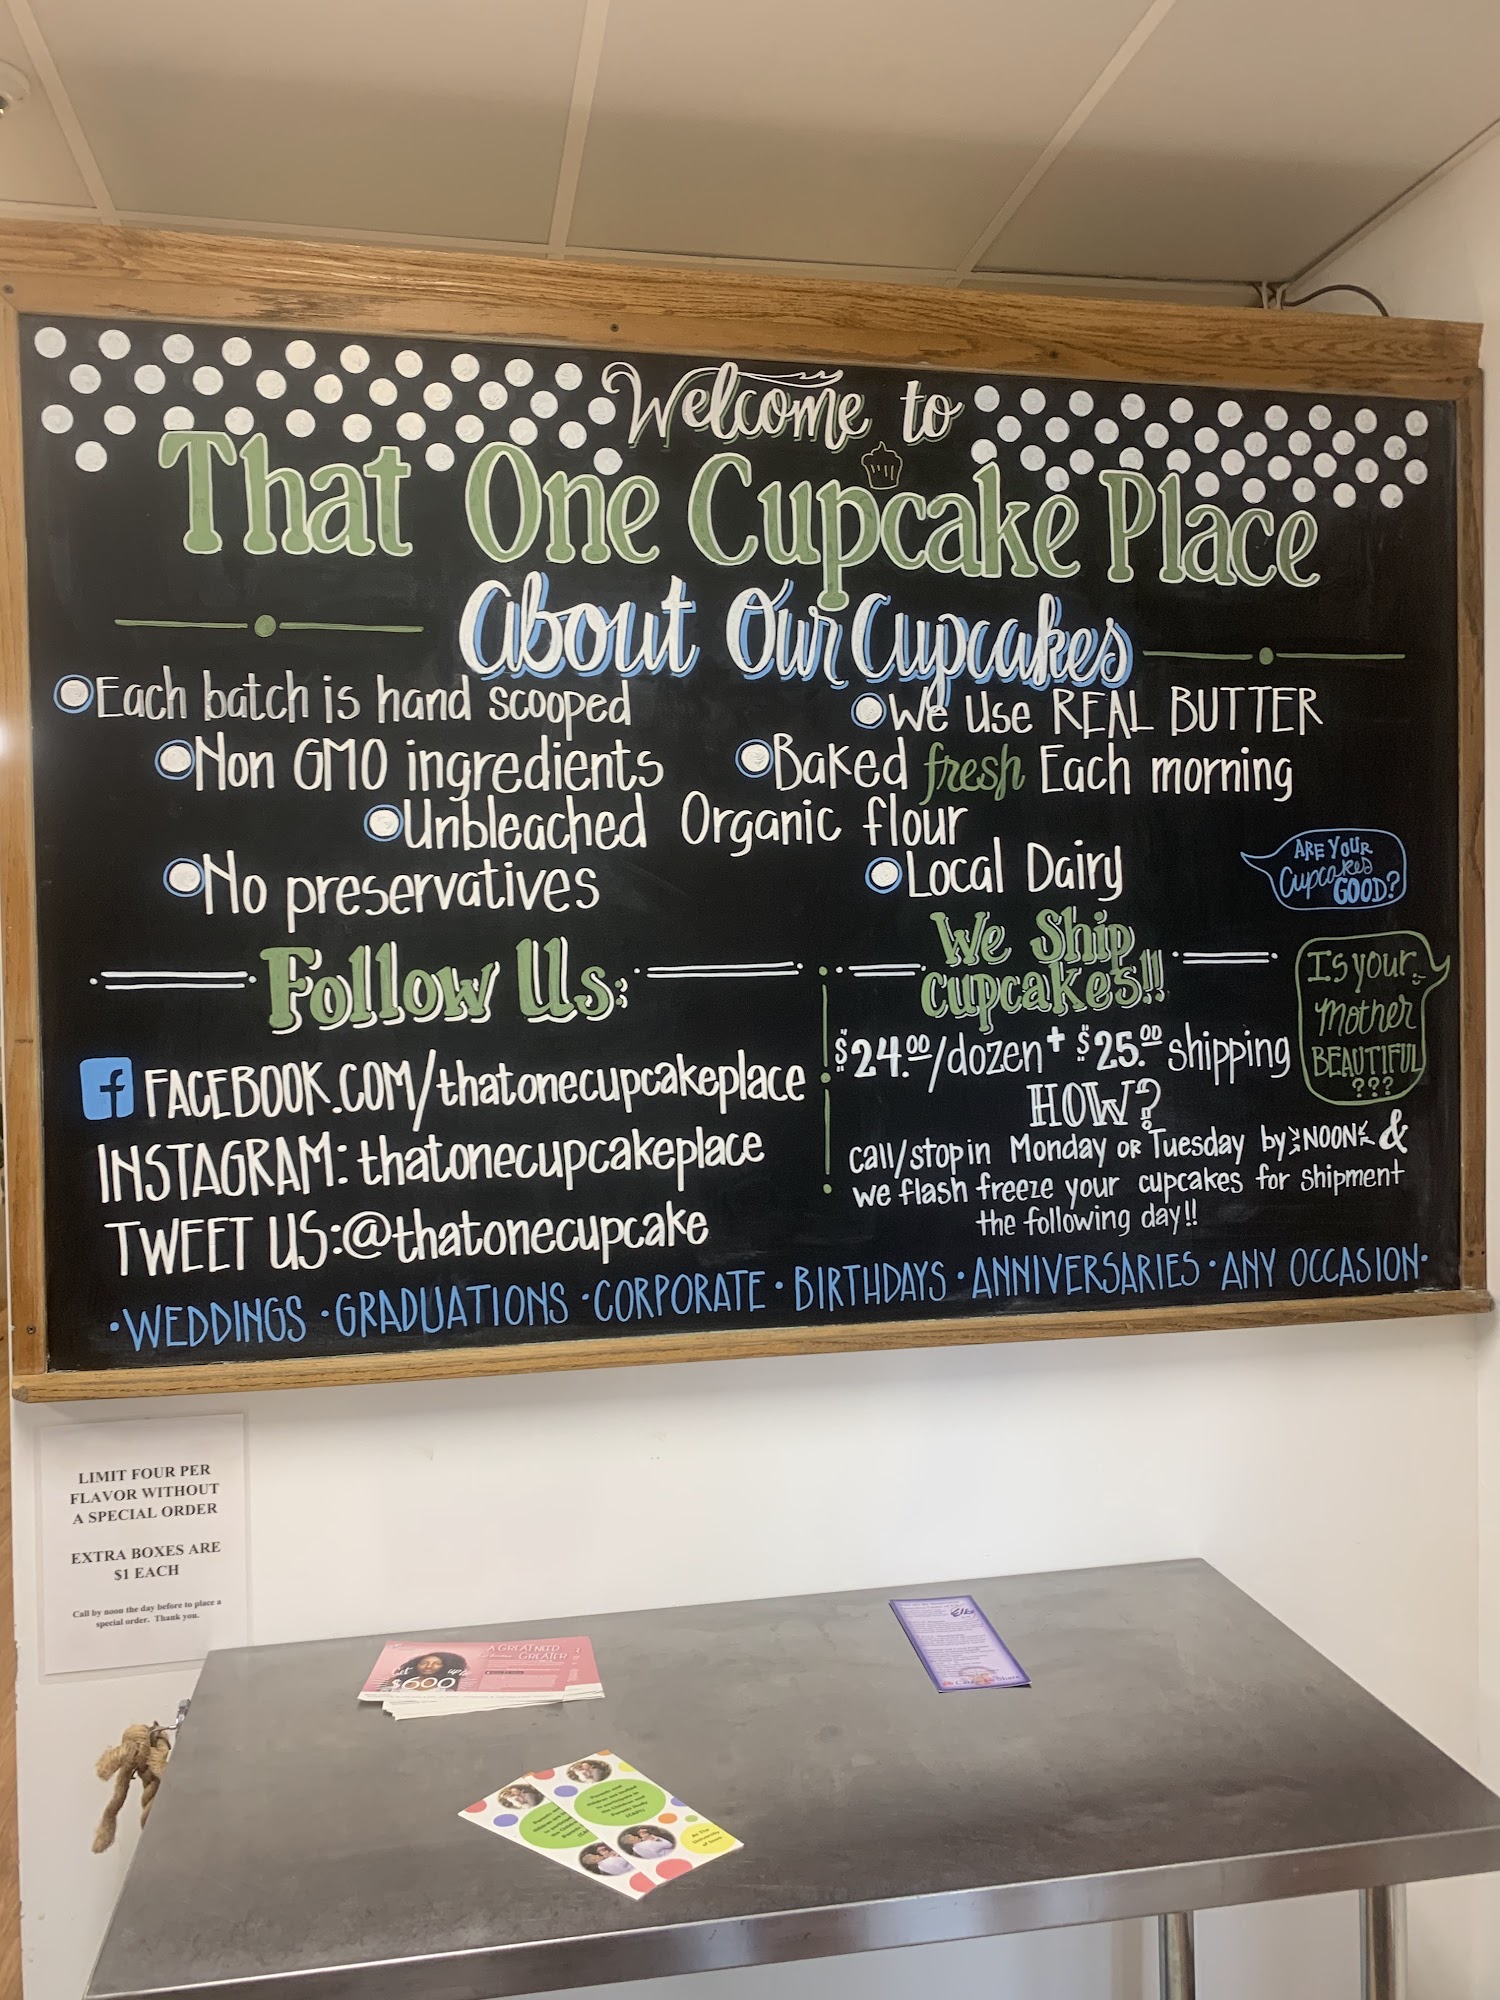 Welcome to
That One Cupcake Place
About Our Cupcakes
Each batch is hand scooped
We use REAL BUTTER
Non GMO ingredients
Baked fresh Each morning
Unbleached Organic flour
No preservatives
Local Dairy
ARE YOUR
Cupcakes
GOOD?
Follow Us:
FACEBOOK.COM/thatonecupcakeplace
INSTAGRAM: thatonecupcakeplace
TWEET US:@thatonecupcake
We Ship
cupcakes!!
$24.00/dozen + $25.00 shipping
HOW?
call/stop in Monday OR Tuesday by NOON &
we flash freeze your cupcakes for shipment
the following day!!
Is your
mother
BEAUTIFUL
???
·WEDDINGS ·GRADUATIONS ·CORPORATE ·BIRTHDAYS ·ANNIVERSARIES ·ANY OCCASION·
LIMIT FOUR PER
FLAVOR WITHOUT
A SPECIAL ORDER
EXTRA BOXES ARE
$1 EACH
Call by noon the day before to place a
special order. Thank you.
A GREAT NEED
GREATER
Get up to
$600
Parents and
children are invited
to participate in
the Children and
Parents Study
(CAPS)
At The
University
of Iowa